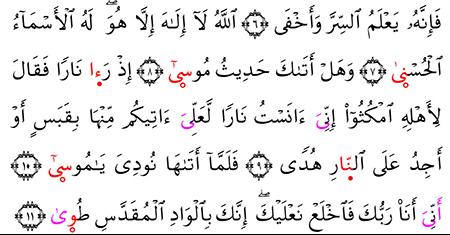 فَإِنَّهُۥ يَعْلَمُ ٱلسِّرَّ وَأَخْفَى ۝٦ ٱللَّهُ لَآ إِلَٰهَ إِلَّا هُوَۖ لَهُ ٱلْأَسْمَآءُ
ٱلْحُسْنَىٰ ۝٧ وَهَلْ أَتَىٰكَ حَدِيثُ مُوسَىٰٓ ۝٨ إِذْ رَءَا نَارًا فَقَالَ
لِأَهْلِهِ ٱمْكُثُوٓا۟ إِنِّىَ ءَانَسْتُ نَارًا لَّعَلِّىَ ءَاتِيكُم مِّنْهَا بِقَبَسٍ أَوْ
أَجِدُ عَلَى ٱلنَّارِ هُدًى ۝٩ فَلَمَّآ أَتَىٰهَا نُودِىَ يَٰمُوسَىٰٓ ۝١٠
أَنِّىَ أَنَا۠ رَبُّكَ فَٱخْلَعْ نَعْلَيْكَۖ إِنَّكَ بِٱلْوَادِ ٱلْمُقَدَّسِ طُوَىٰ ۝١١